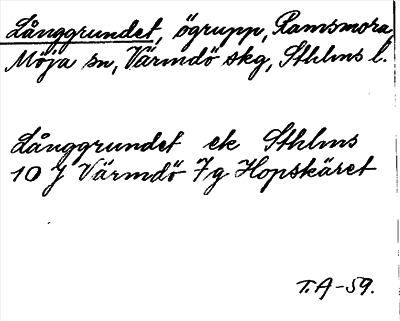 Långgrundet, ögrupp, Ramsmora,
Möja sn, Värmdö skg, Sthlms l.
Långgrundet ek Sthlms
10 J Värmdö 7g Hopskäret
T.A-59.